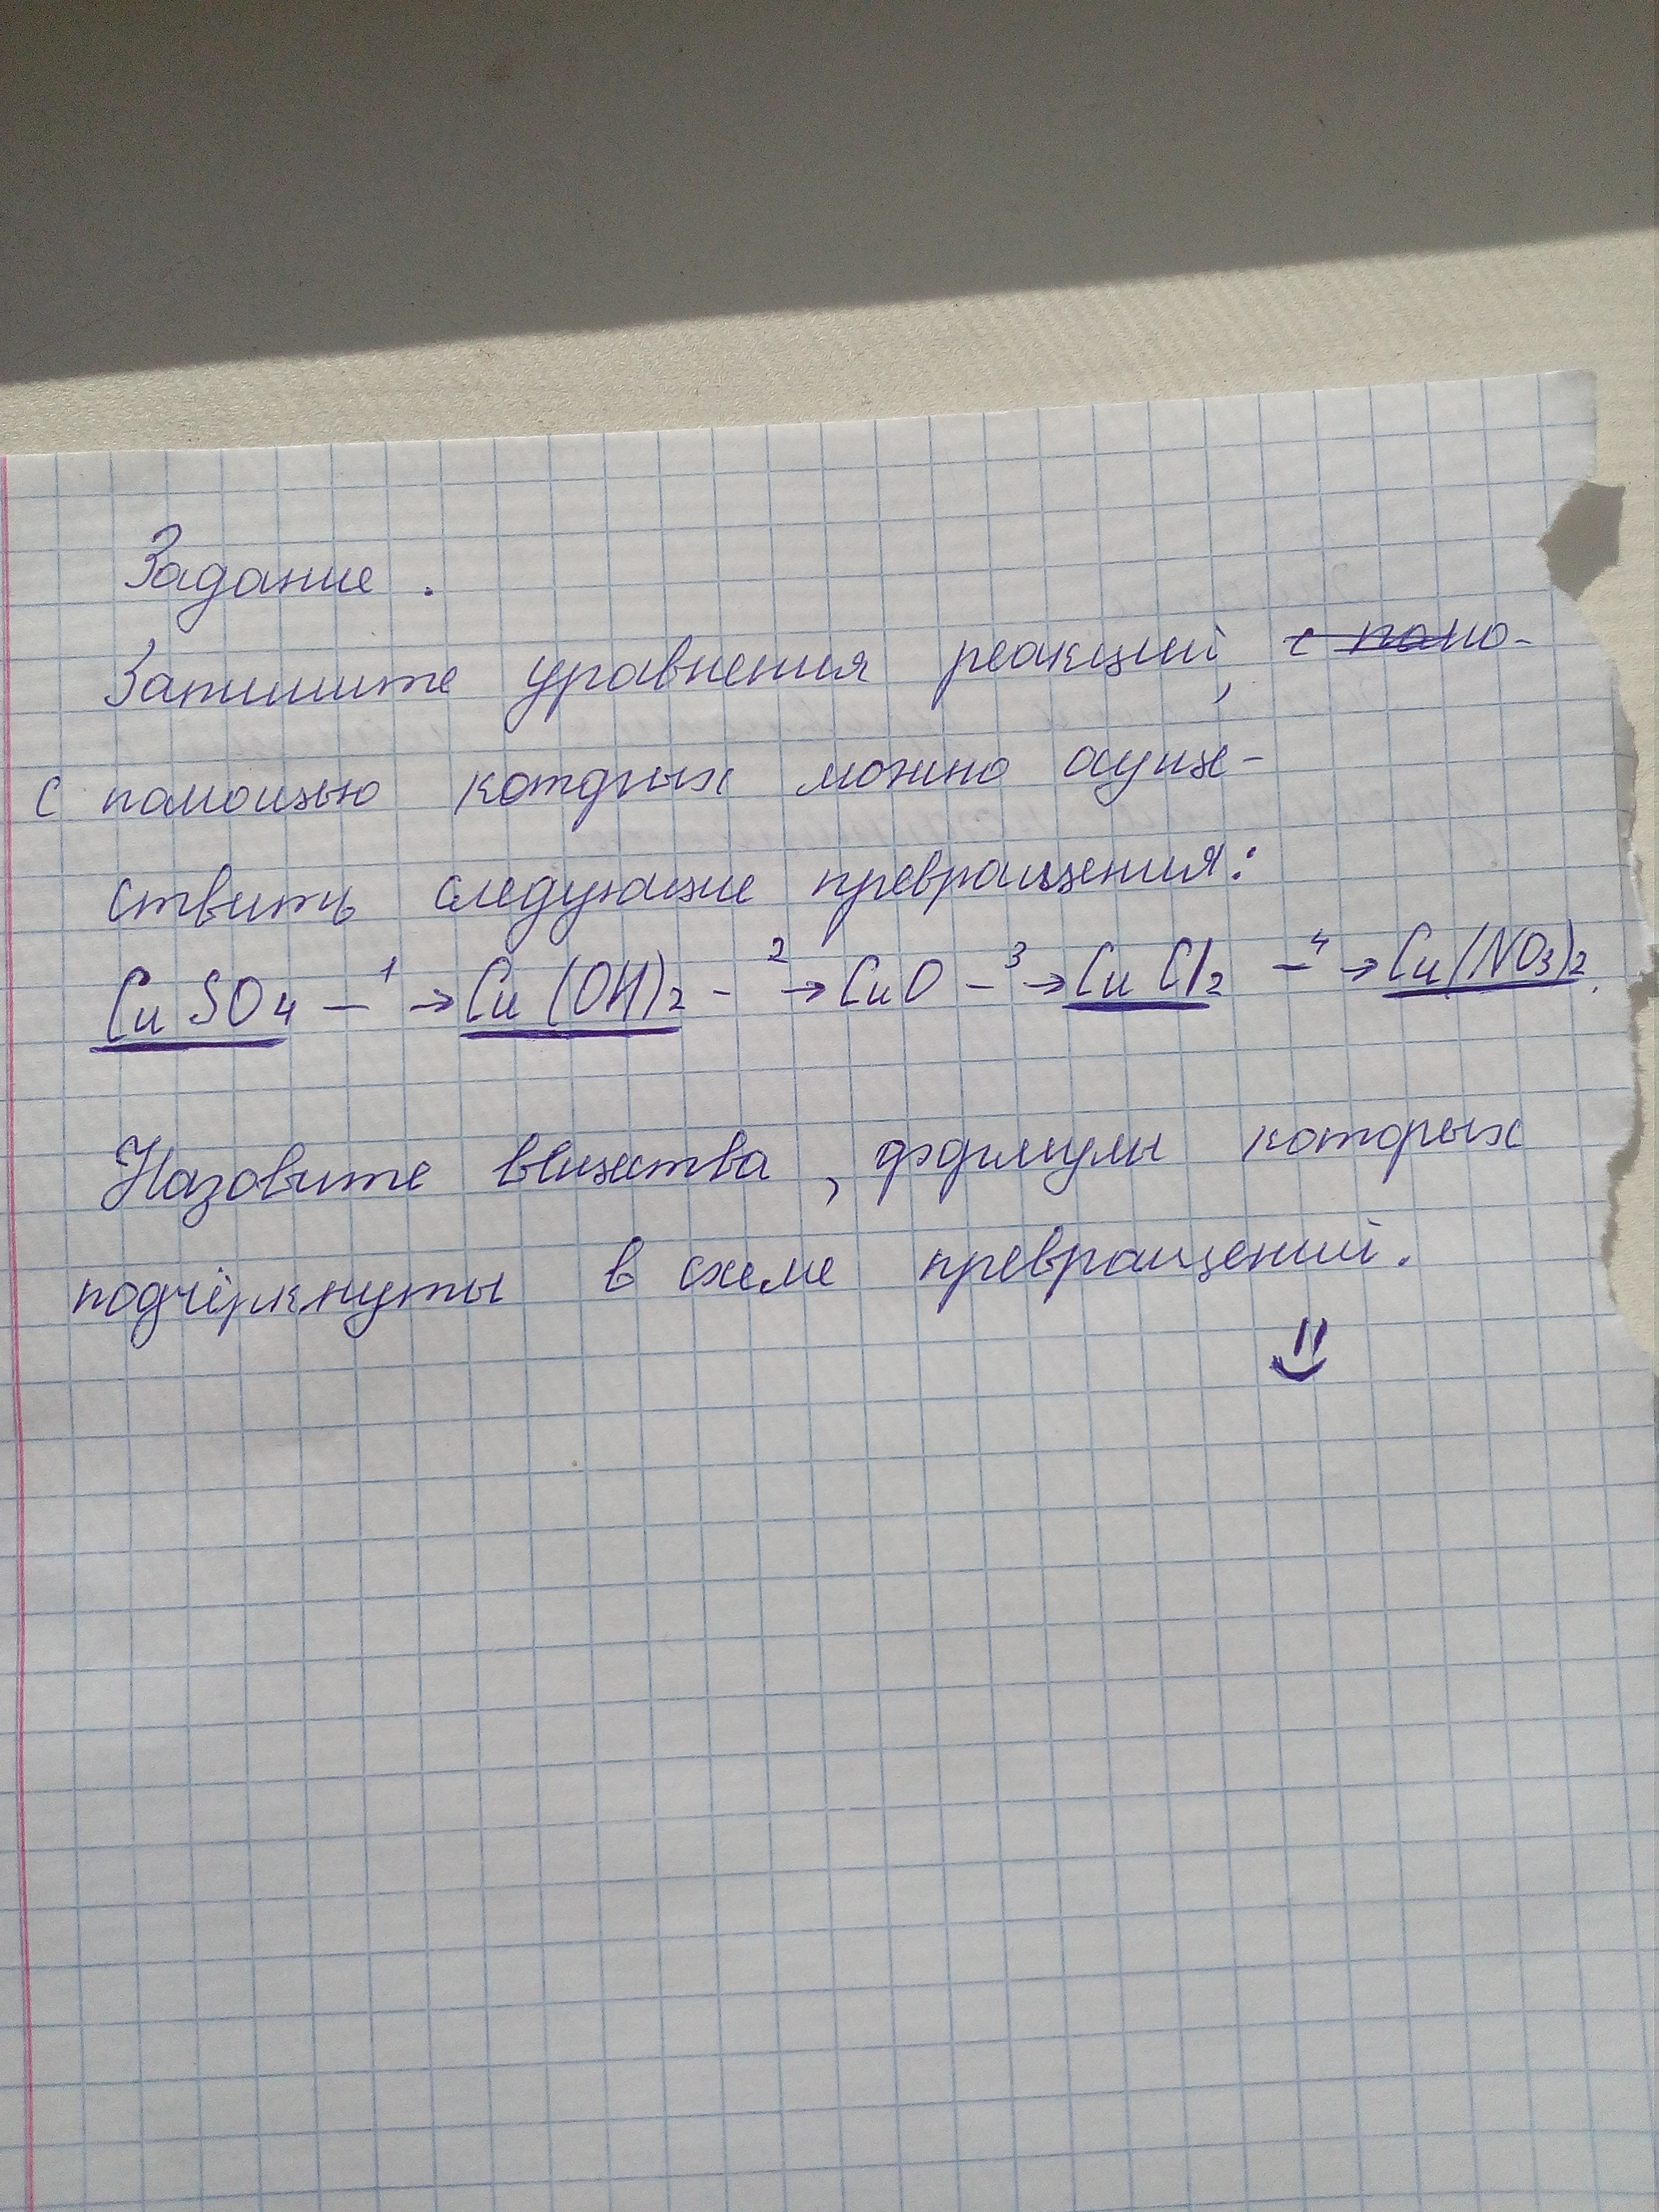 Задание.
Запишите уравнения реакций, с помо-
с помощью которых можно осуще-
ствить следующие превращения:
CuSO4 —1→ Cu(OH)2 —2→ CuO —3→ CuCl2 —4→ Cu(NO3)2.
Назовите вещества, формулы которых
подчёркнуты в схеме превращений.